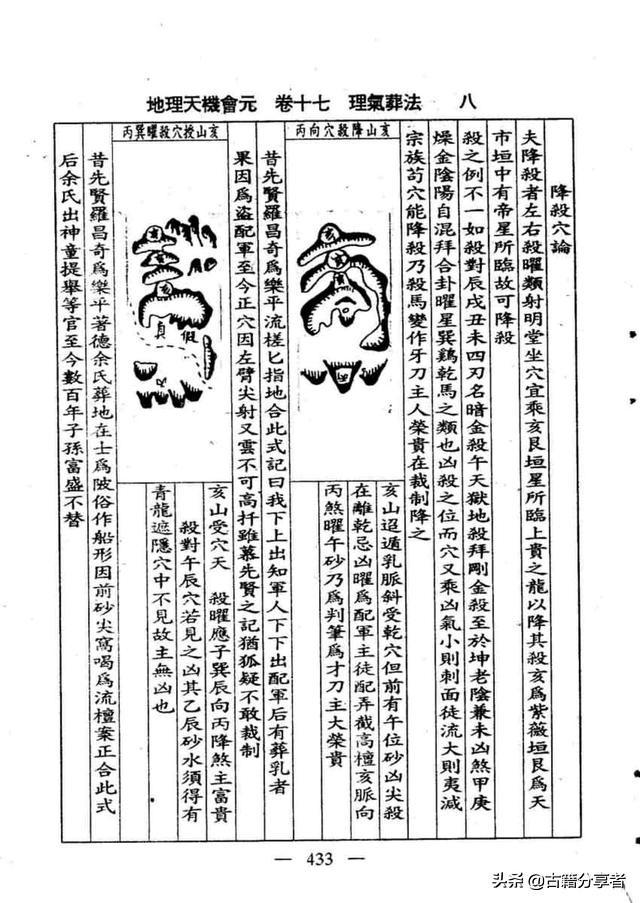 地理天機會元　卷十七　理氣葬法　八
降殺穴論
夫降殺者左右殺曜類射明堂坐穴宜乘亥艮垣星所臨上貴之龍以降其殺亥為紫薇垣艮為天
市垣中有帝星所臨故可降殺
殺之例不一如殺對辰戌丑未四刃名暗金殺午天獄地殺拜剛金殺至於坤老陰兼未凶煞甲庚
燥金陰陽自混拜合卦曜星巽鷄乾馬之類也凶殺之位而穴又乘凶氣小則刺面徒流大則夷滅
宗族苟穴能降殺乃殺馬變作牙刀主人榮貴在裁制降之
亥山降殺穴向丙
亥
亥
亥
亥山迢遁乳脈斜受乾穴但前有午位砂凶尖殺
在離乾忌凶曜為配軍主徒配弄截高檀亥脈向
丙煞曜午砂乃為判筆為才刀主大榮貴
昔先賢羅昌奇為樂平流槎匕指地合此式記曰我下上出知軍人下下出配軍后有葬乳者
果因為盜配軍至今正穴因左臂尖射又雲不可高扦雖慕先賢之記猶狐疑不敢裁制
亥山授穴殺曜巽丙
亥
亥
亥
真
假
亥山受穴天　殺曜應子巽辰向丙降煞主富貴
殺對午辰穴若見之凶其乙辰砂水須得有
青龍遮隱穴中不見故主無凶也
昔先賢羅昌奇為樂平著德余氏葬地在士為陂俗作船形因前砂尖窩喝為流檀案正合此式
后余氏出神童提舉等官至今數百年子孫富盛不替
— 433 —
头条 @古籍分享者